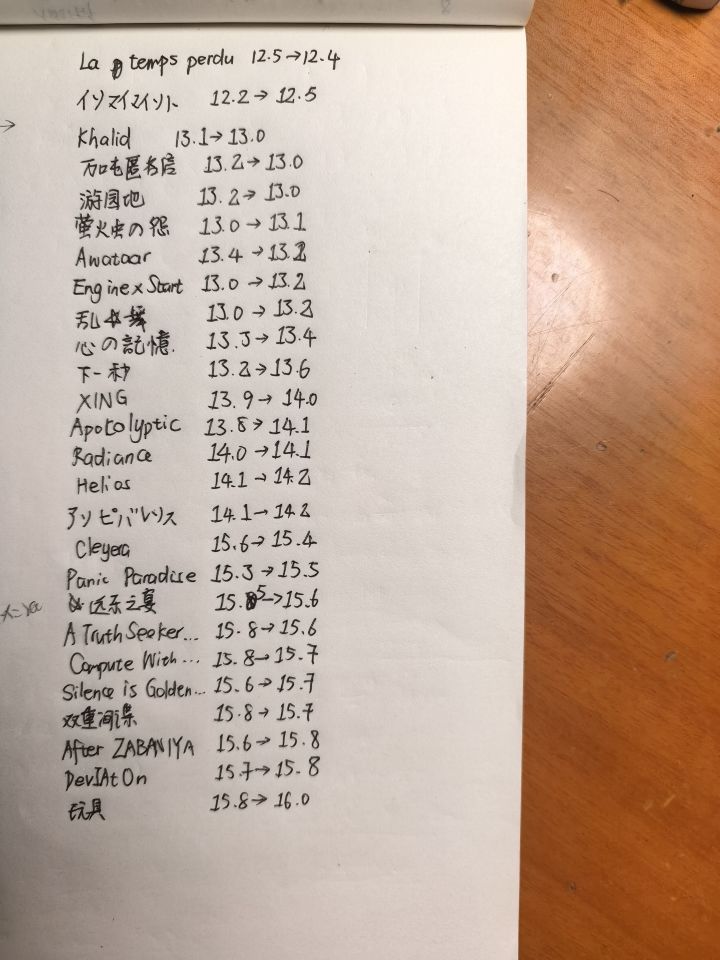 La temps perdu 12.5→12.4
イソマイマイソト 12.2→12.5
Khalid 13.1→13.0
万吨匿名信 13.2→13.0
游园地 13.2→13.0
萤火虫の怨 13.0→13.1
Awataar 13.4→13.2
Engine x Start 13.0→13.2
乱舞 13.0→13.2
心の記憶. 13.3→13.4
下一秒 13.2→13.6
XING 13.9→14.0
Apocolyptic 13.8→14.1
Radiance 14.0→14.1
Helios 14.1→14.2
アソピバレリス 14.1→14.2
Cleyera 15.6→15.4
Panic Paradise 15.3→15.5
远东之夏 15.5→15.6
A Truth Seeker... 15.8→15.6
Compute With... 15.8→15.7
Silence is Golden... 15.6→15.7
双重间谍 15.8→15.7
After ZABANIYA 15.6→15.8
DevIAtOn 15.7→15.8
玩具 15.8→16.0